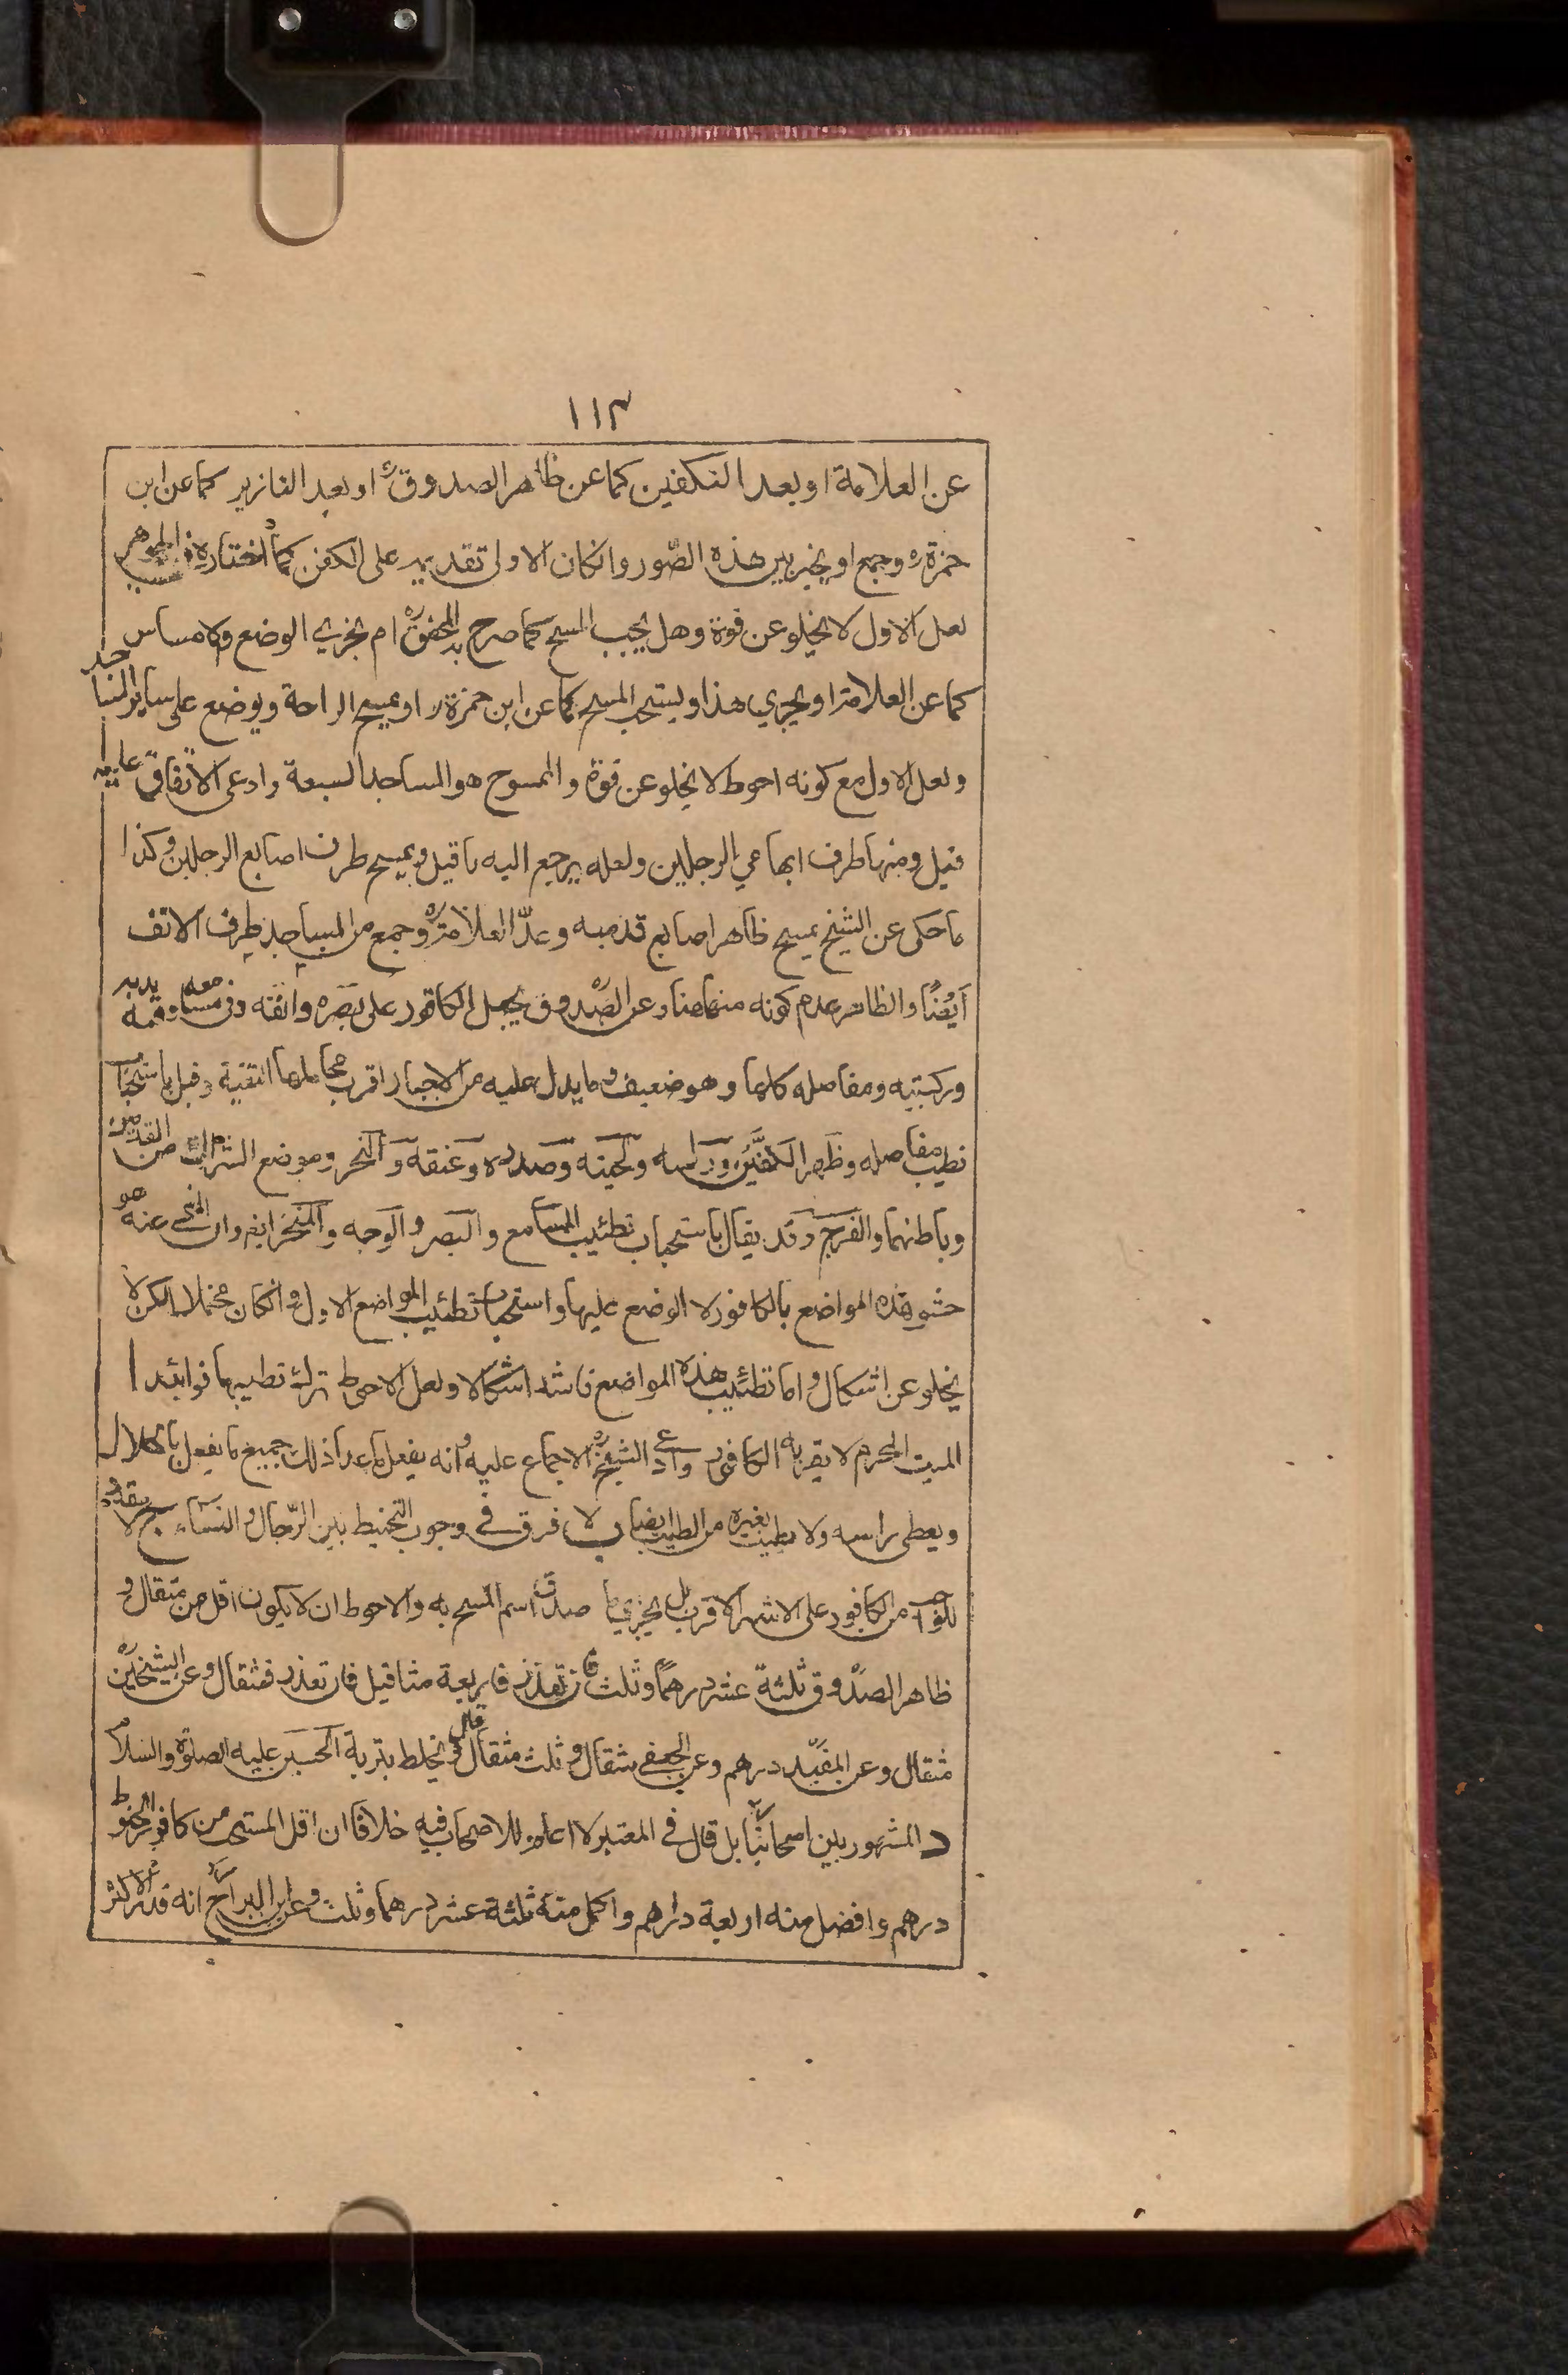 ١١٣
عن العلامة او بعد التكفين كما عن ظاهر الصدوق ره او بعد التازير كما عن ابن
حمزة ره وجمع او يخير بين هذه الصّور وانكان الاولى تقديمه على الكفن كما اختاره في الجواهر
لعل الاول لا يخلو عن قوة وهل يجب المسح كما صرح به المحقق ره ام يجزي الوضع والامساس
كما عن العلامة او يجزي هذا ويستحب المسح كما عن ابن حمزة ره او يمسح الراحة ويوضع على ساير المساجد
ولعل الاول مع كونه احوط لا يخلو عن قوة والممسوح هو المساجد السبعة وادعى الاتفاق عليه
قيل ومنها طرف ابهامي الرجلين ولعله يرجع اليه ما قيل ويمسح طرف اصابع الرجلين وكذا
ما حكى عن الشيخ يمسح ظاهر اصابع قدميه وعدّ العلامة ره وجمع من المساجد طرف الانف
ايضًا والظاهر عدم كونه منها هنا وعن الصّدوق يجعل الكافور على بصره وانفه وفي مسامعه وفيه ويديه
وركبتيه ومفاصله كلها وهو ضعيف وما يدل عليه من الاخبار اقرب محاملها التقية وقيل باستحباب
تطيب مفاصله وظهر الكفين وراسه ولحيته وصدره وعنقه والنحر وموضع الشراك من القدمين
وباطنهما والفرج وقد يقال باستحباب تطييب المسامع والبصر والوجه والمنخر ايضا وان المنهي عنه هو
حشو هذه المواضع بالكافور لا الوضع عليها واستحباب تطييب المواضع الاول وانكان محتملا لكن لا
يخلو عن اشكال واما تطييب هذه المواضع فاشد اشكالا ولعل الاحوط ترك تطييبها فوائد ا
الميت المحرم لا يقربه الكافور وادعى الشيخ ره الاجماع عليه وانه يفعل ما عدا ذلك جميع ما يفعل بالحلال
ويغطى راسه ولا يطيب بغيره من الطيب ايضا ب لا فرق في وجوب التحنيط بين الرّجال والنساء ج لا يقدر
الواجب من الكافور على الاشهر الاقرب بل يجزي ما صدق اسم المسح به والاحوط ان لا يكون اقل من مثقال و
ظاهر الصدّوق ثلثة عشر درهمًا وثلث فان تعذر فاربعة مثاقيل فان تعذر فمثقال وعن الشيخين
مثقال وعن المفيد درهم وعن الجعفي مثقال وثلث مثقال قال ويخلط بتربة الحسين عليه الصلوة والسلام
د المشهور بين اصحابنا بل قال في المعتبر لا اعلم للاصحاب فيه خلافا ان اقل المستحب من كافور الحنوط
درهم وافضل منه اربعة دراهم واكمل منه ثلثة عشر درهما وثلث وعن ابن البراج انه قدر الاكثر